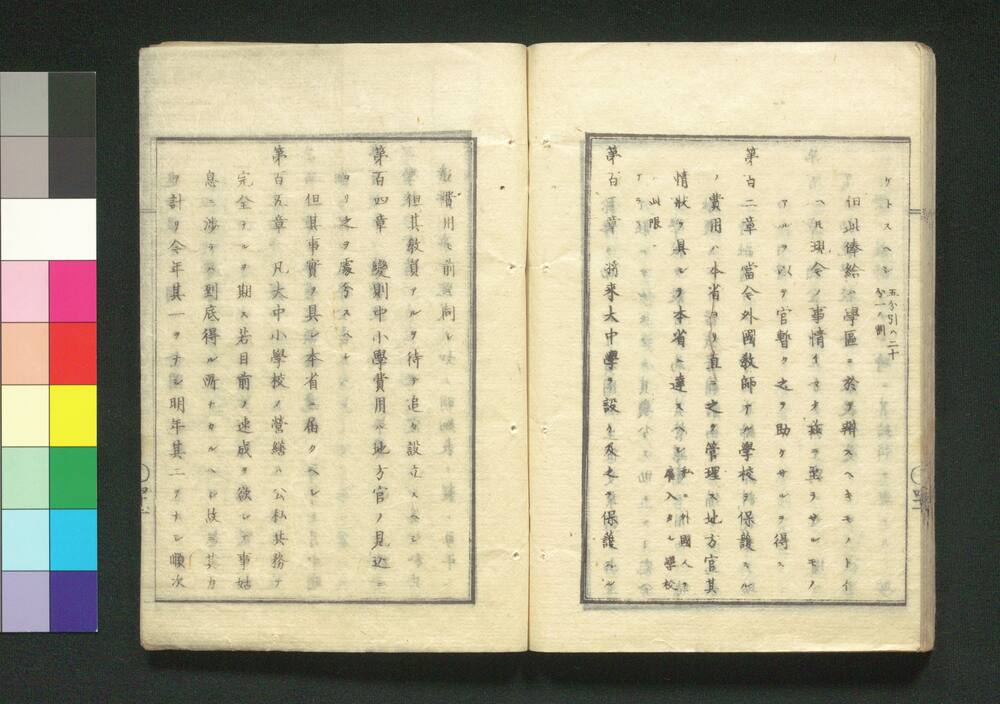 ケトスヘシ 五分引ハ二十分一ノ割
但此俸給ハ學區ニ於テ辨スヘキモノトイ
ヘトモ現今ノ事情イマタ茲ニ至ラサルモノ
アルヲ以テ官暫ク之ヲ助ケサルヲ得ス
第百二章 當今外國教師アル學校ヲ保護スル
ノ費用ハ本省ヨリ直ニ之ヲ管理ス地方官其
情狀ヲ具シテ本省ニ達スヘシ 私ニ外國人ヲ雇入タル學校
此限
第百三章 將来大中學ヲ設ケ及之ヲ保護スル
ノ費用モ前ニ同シ
但其教員アルヲ待テ追々設立スヘシ
第百四章 變則中小學費用ハ地方官ノ見込ニ
ヨリ之ヲ處分スヘシ
但其事實ヲ具シ本省ニ届クヘシ
第百五章 凡大中小學校ノ營繕ハ公私共務テ
完全ナルヲ期ス若目前ノ速成ヲ欲シテ事姑
息ニ涉テハ到底得ル所ナカルヘシ故ニ其力
ヲ計リ今年其一ヲナシ明年其二ヲナシ順次